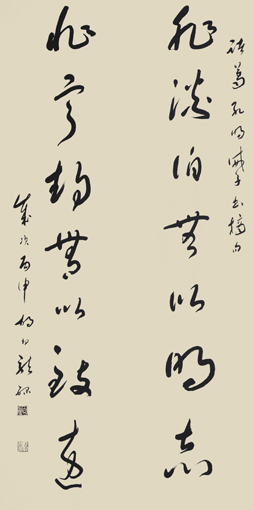 諸葛孔明誡子書摘句
非淡泊無以明志
非寧静無以致遠
歲次丙申